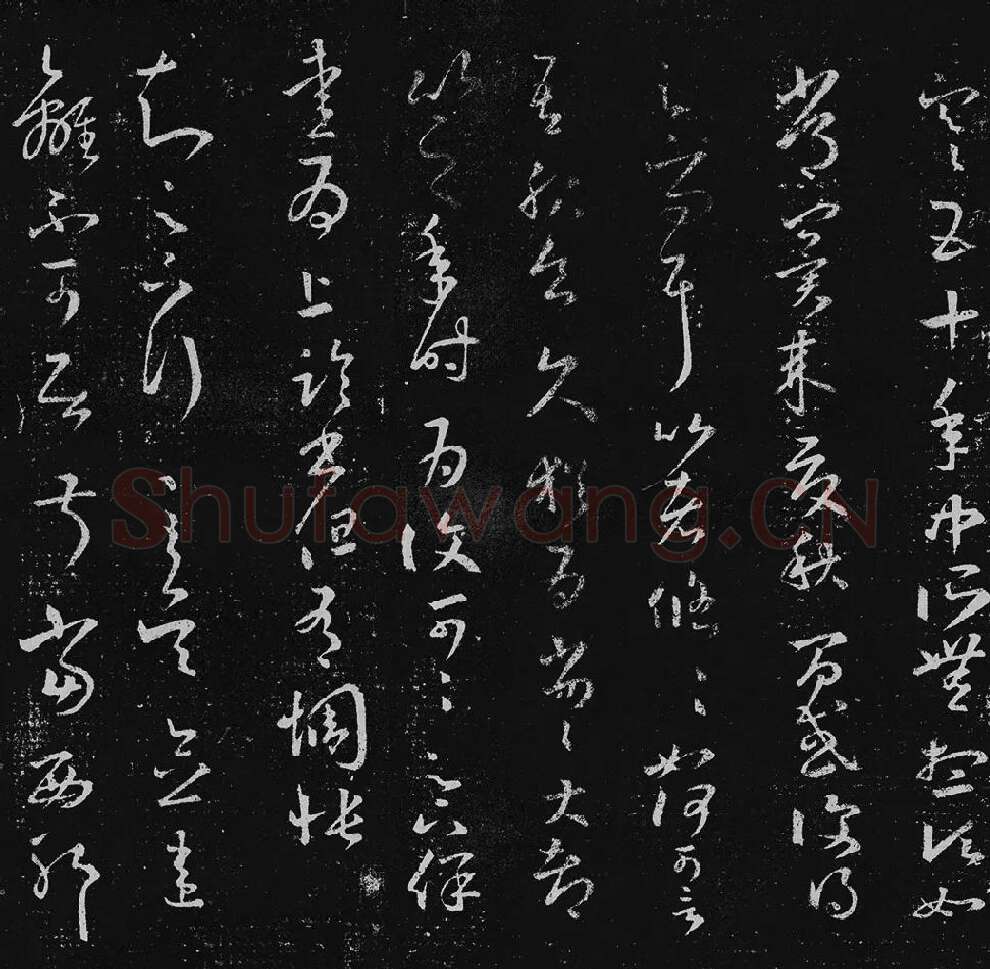 寒五十年中所無想頃如
常冀來夏秋間或復得
足下問耳比者悠悠如何可言
吾服食久猶為劣劣大都
比之年時為復可可足下保
愛為上臨書但有惆悵
知足下行至吳念違
離不可居叔當西耶
Shufawang.CN